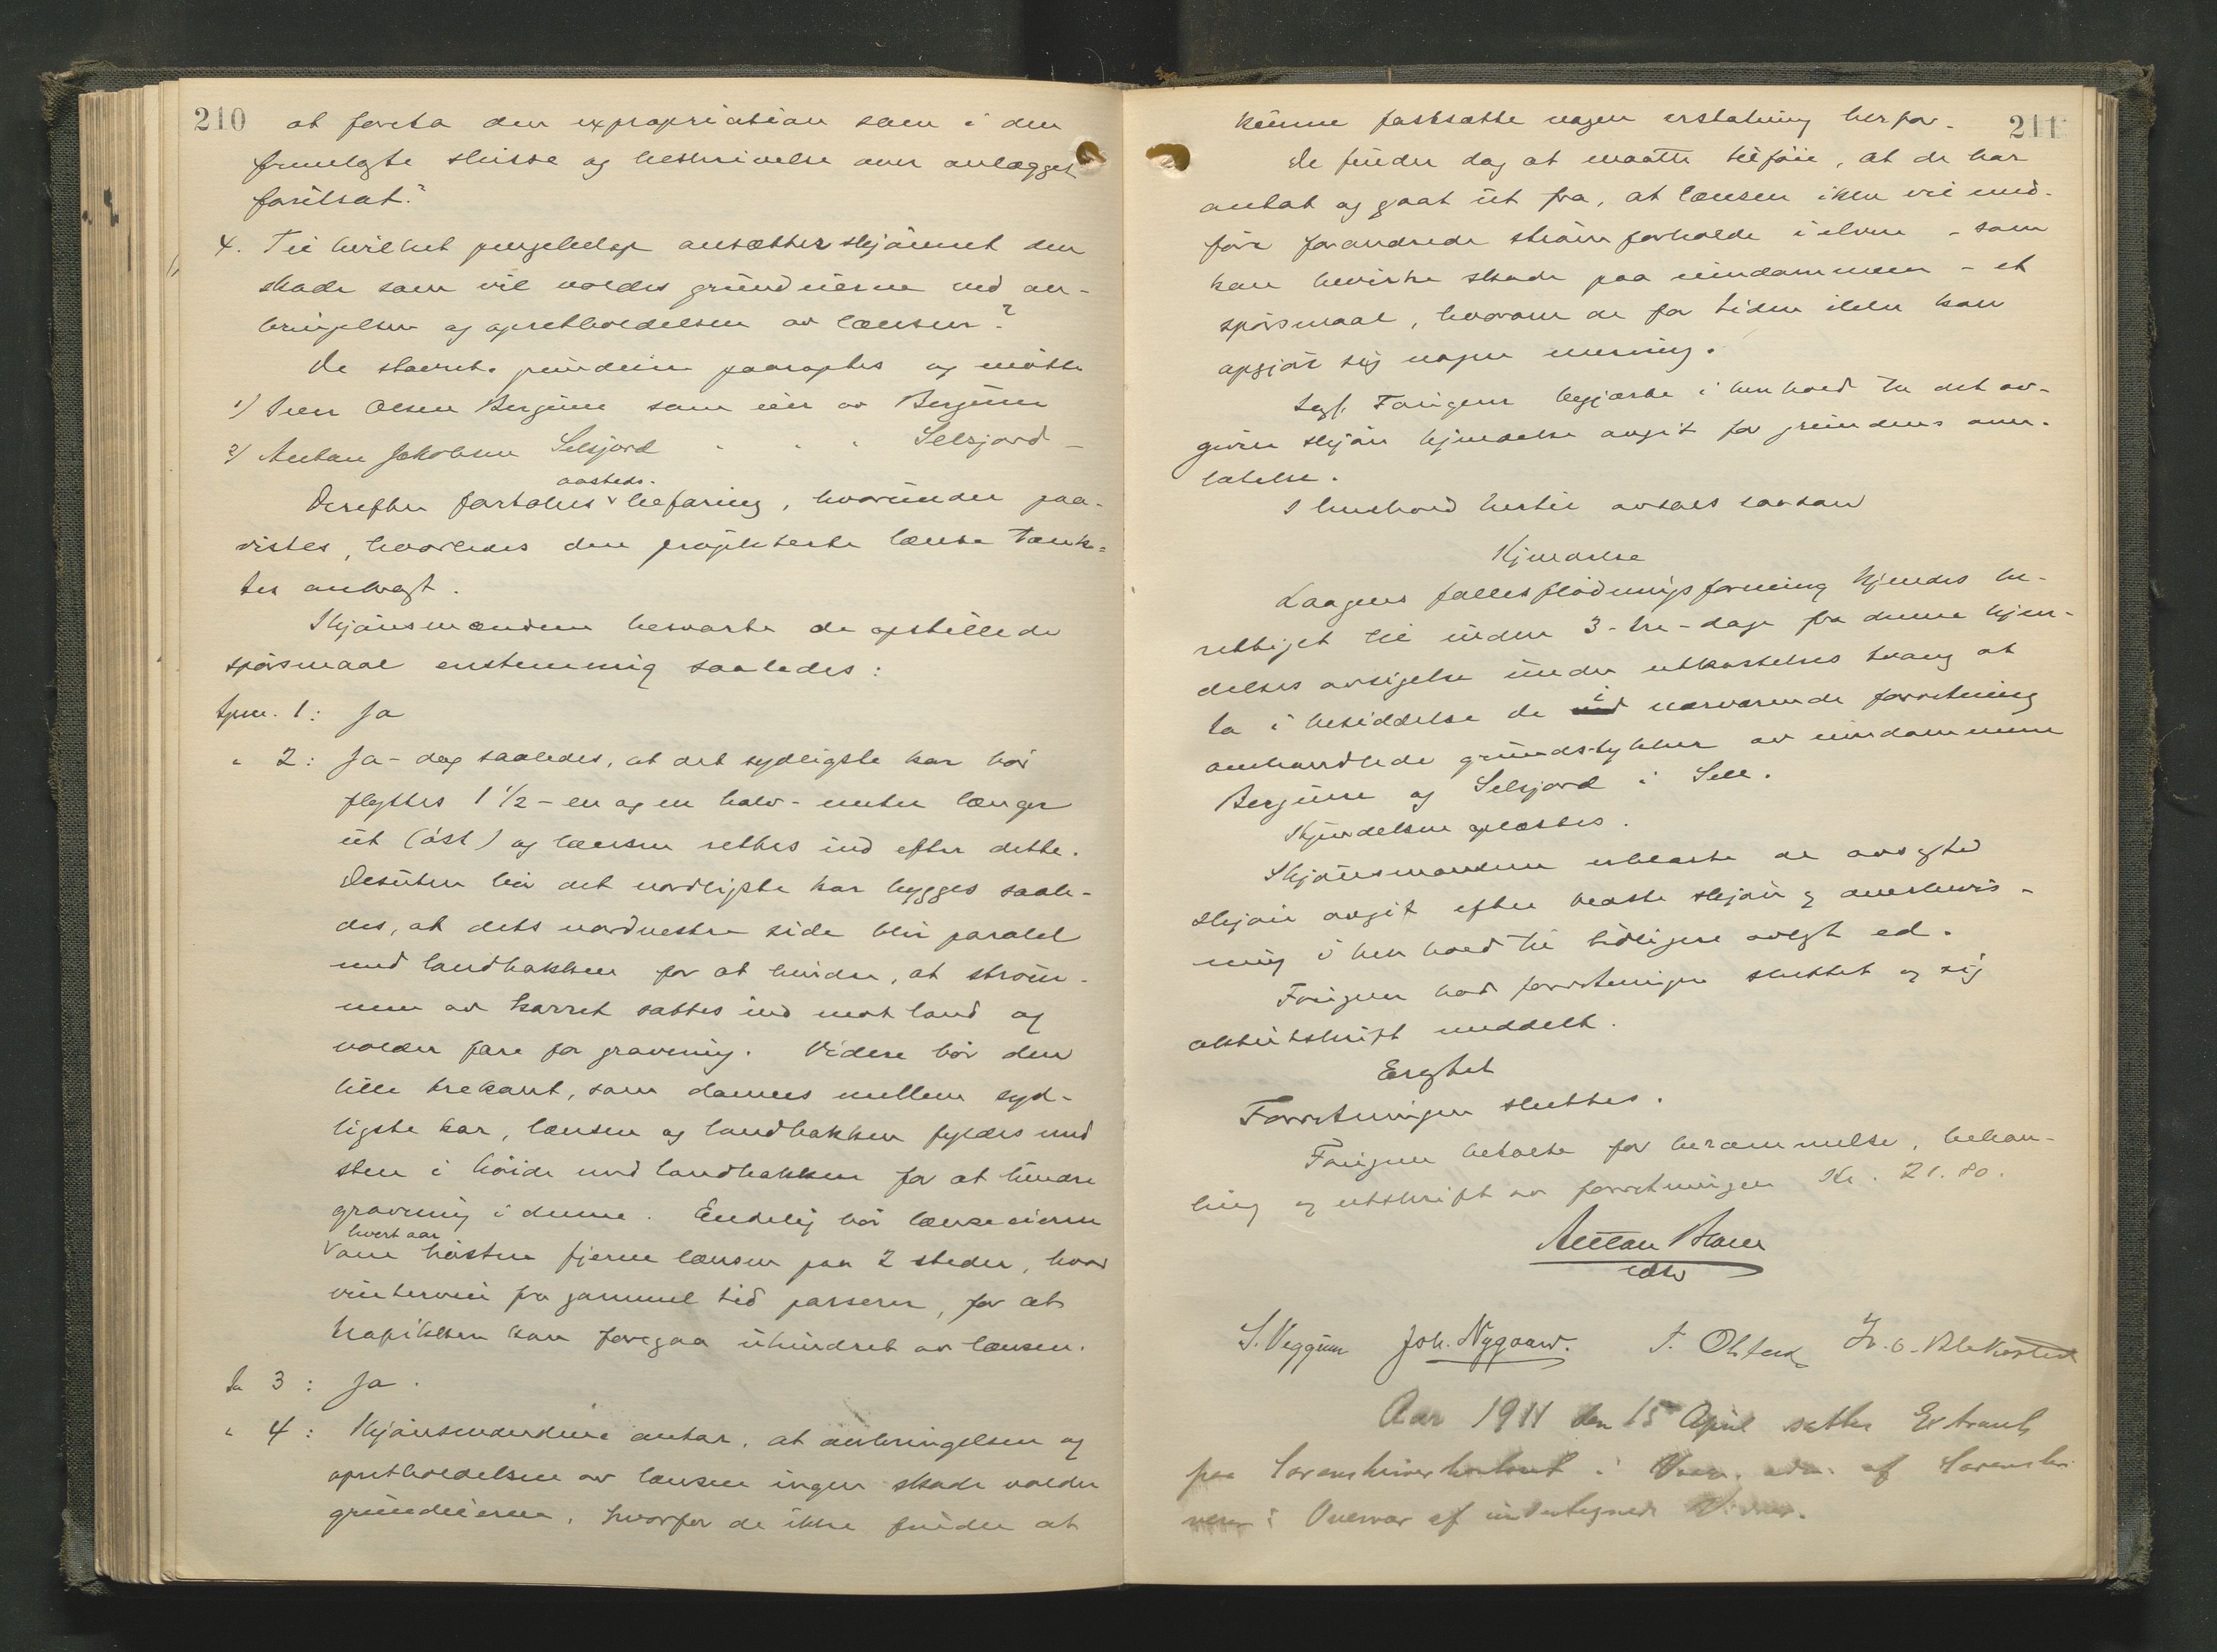 210
at foreta den expropriation som i den
fremlagte skisse og beskrivelse over anlægget
forutsat?
4. Til hvilket pengebeløp ansætter skjønnet den
skade som vil voldes grundeierne ved an-
bringelsen og opretholdelsen av lænsen?
De stevnte grundeiere paaroptes og møtte
1) Iver Olsen Bergum som eier av Bergum
2) Anton Jakobsen Selsjord " " " Selsjord -
aasteds-
Derefter fortokes befaring, hvorunder paa-
vistes, hvorledes den projekterte lænse tænk-
tes anbragt.
Skjønsmændene besvarte de opstillede
spørsmaal enstemmig saaledes:
Spm. 1: Ja
" 2: Ja - dog saaledes, at det sydligste kar bør
flyttes 1 1/2 - en og en halv - meter længer
ut (øst) og lænsen rettes ind efter dette.
Desuten bør det nordligste kar bygges saale-
des, at dets nordvestre side blir paralel
med landbakken for at hindre, at strøm-
men av karret sættes ind mot land og
volder fare for gravning. Videre bør den
lille trekant, som dannes mellem syd-
ligste kar, lænsen og landbakken fyldes med
sten i høide med landbakken for at hindre
gravning i denne. Endelig bør lænseeieren
hvert aar
om høsten fjerne lænsen paa 2 steder, hvor
vintervei fra gammel tid passerer, for at
trafikken kan foregaa uhindret av lænsen.
3: Ja.
" 4: Skjønsmændene antar, at anbringelsen og
opretholdelsen av lænsen ingen skade volder
grundeierne, hvorfor de ikke finder at
211
kunne fastsætte nogen erstatning herfor.
De finder dog at maatte tilføie, at de har
antat og gaat ut fra, at lænsen ikke vil med-
føre forandrede strømforholde i elven - som
kan bevirke skade paa eiendommen - et
spørsmaal, hvorom de for tiden ikke kan
opgjøre sig nogen mening.
Sagf. Fougner begjærte i henhold til det av-
givne skjøn kjendelse avgit for grundens over-
latelse.
I henhold hertil avsaes saadan
Kjendelse
Laagens fællesflødningsforening kjendes be-
rettiget til inden 3 - tre - dage fra denne kjen-
delses avsigelse under utkastelses tvang at
i
ta i besiddelse de ved nærværende forretning
omhandlede grundstykker av eiendommene
Bergum og Selsjord i Sell.
Kjendelsen oplæstes.
Skjønsmændene erklærte de avsagte
skjøn avgit efter bedste skjøn og overbevis-
ning i henhold til tidligere avlagt ed.
Fougner bad forretningen sluttet og sig
aktutskrift meddelt.
Eragtet
Forretningen sluttes.
Fougner betalte for berammelse, behand-
ling og utskrift av forretningen Kr. 21.80.
Anton Blom
edsv
S. Veggum Joh. Nygaard. T. Olstad
Aar 1911 den 15 April sattes Extraret
paa Sorenskriverkontoret i af Sorenskri
veren i Overvær af undertegnede Vidner.